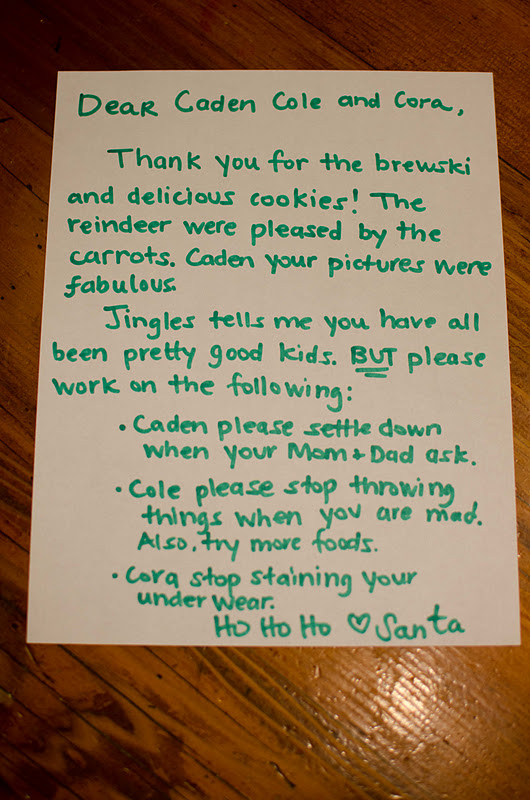 Dear Caden Cole and Cora,
Thank you for the brewski
and delicious cookies! The
reindeer were pleased by the
carrots. Caden your pictures were
fabulous.
Jingles tells me you have all
been pretty good kids. BUT please
work on the following:
• Caden please settle down
when your Mom + Dad ask.
• Cole please stop throwing
things when you are mad.
Also, try more foods.
• Cora stop staining your
under wear.
Ho Ho Ho ♡ Santa